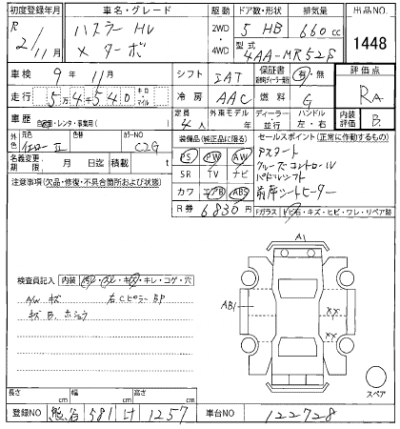 初度登録年月 車名・グレード 駆動 ドア数・形状 排気量 出品NO
R 2/11月 ハスラー HV × ターボ 2WD・4WD 5 HB 660cc 1448
型式 4AA-MR52S
車検 9年 11月 シフト IAT 保証書 有・無 評価点
走行 54540 キロ・マイル 冷房 AAC 燃料 G RA
車歴 自家用・レンタ・事業用 定員 4人 外車モデル 年 ディーラー・並行 ハンドル 左・右 内装評価 B
外色 元色 カラーNO C2G
装備品(純正品に限る) セールスポイント(正常に作動するもの)
名義変更期限 月 日迄 積載 t
PS PW AW Pスタート
クルーズコントロール
SR TV ナビ パドルシフト
カワ エアB ABS 前席シートヒーター
注意事項(欠品・修復・不具合箇所および状態)
R券 6830円 Fガラス ヒビ石・キズ・ヒビ・ワレ・リペア跡
A1
検査員記入 内装 キレ・コゲ・穴
A/W キズ 右Cピラー BP
AB1
XX
XX
スペア
長さ cm 幅 cm 高さ cm
登録NO 熊谷 581 け 1257 車台NO 122728